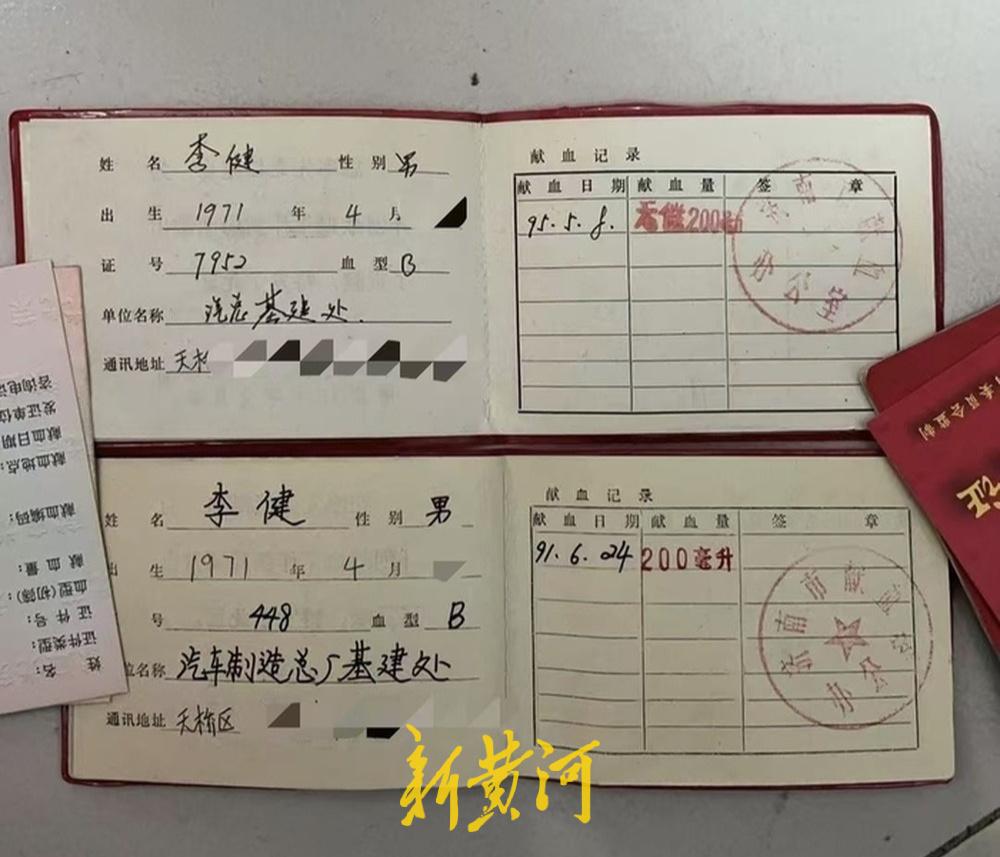 姓 名 李健 性别 男
出 生 1971 年 4 月
证 号 7952 血型 B
单位名称 汽总基建处
通讯地址 天桥
献血记录
献血日期 献血量 签 章
95.5.8. 无偿200
济南 血 办公室
姓 名 李健 性别 男
出 生 1971 年 4 月
号 448 血型 B
位名称 汽车制造总厂基建处
通讯地址 天桥区
献血记录
献血日期 献血量 签 章
91.6.24 200毫升
济南市献血办公室
姓 名：
证件类型
证 件 号：
血型(初筛)：
献 血 量：
献血编码：
献血地点：
献血日期
发证单位
咨询电话
委员会监制
证
新黄河